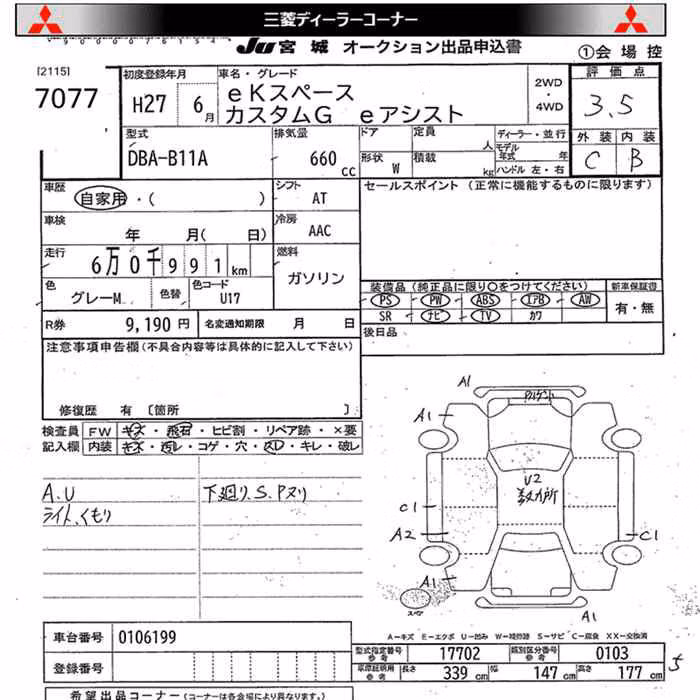 三菱ディーラーコーナー
JU 宮城 オークション出品申込書
①会場控
[2115]
7077
初度登録年月
H27 6月
車名・グレード
eKスペース
カスタムG eアシスト
2WD
・
4WD
評価点
3.5
外装 内装
C B
型式
DBA-B11A
排気量
660 cc
ドア
定員
人
形状 W
積載
kg
ディーラー・並行
モデル
年式 年
ハンドル 左・右
車歴
自家用・( )
シフト
AT
車検
年 月( 日)
冷房
AAC
走行
6万0千991km
燃料
ガソリン
色
グレーM
色替
色コード
U17
R券 9,190円
名変通知期限 月 日
セールスポイント (正常に機能するものに限ります)
装備品(純正品に限り○をつけてください)
新車保証書
PS PW ABS エアB AW
SR ナビ TV カワ
有・無
後日品
注意事項申告欄(不具合内容等は具体的に記入して下さい)
修復歴 有 〔箇所 〕
検査員
記入欄
FW キズ・飛石・ヒビ割・リペア跡・×要
内装 キズ・汚レ・コゲ・穴・スレ・キレ・破レ
A.U
ライト、くもり
下廻り S.Pヌリ
A1
A1
U2
数カ所
C1
A2
C1
A1
A1
A―キズ E―エクボ U―凹み W―補修跡 S―サビ C―腐食 XX―交換済
車台番号 0106199
登録番号
型式指定番号
参考
17702
類別区分番号
参考
0103
車庫証明用
参考
長さ 339 cm 幅 147 cm 高さ 177 cm
5
希望出品コーナー (コーナーは各会場により異なります。)